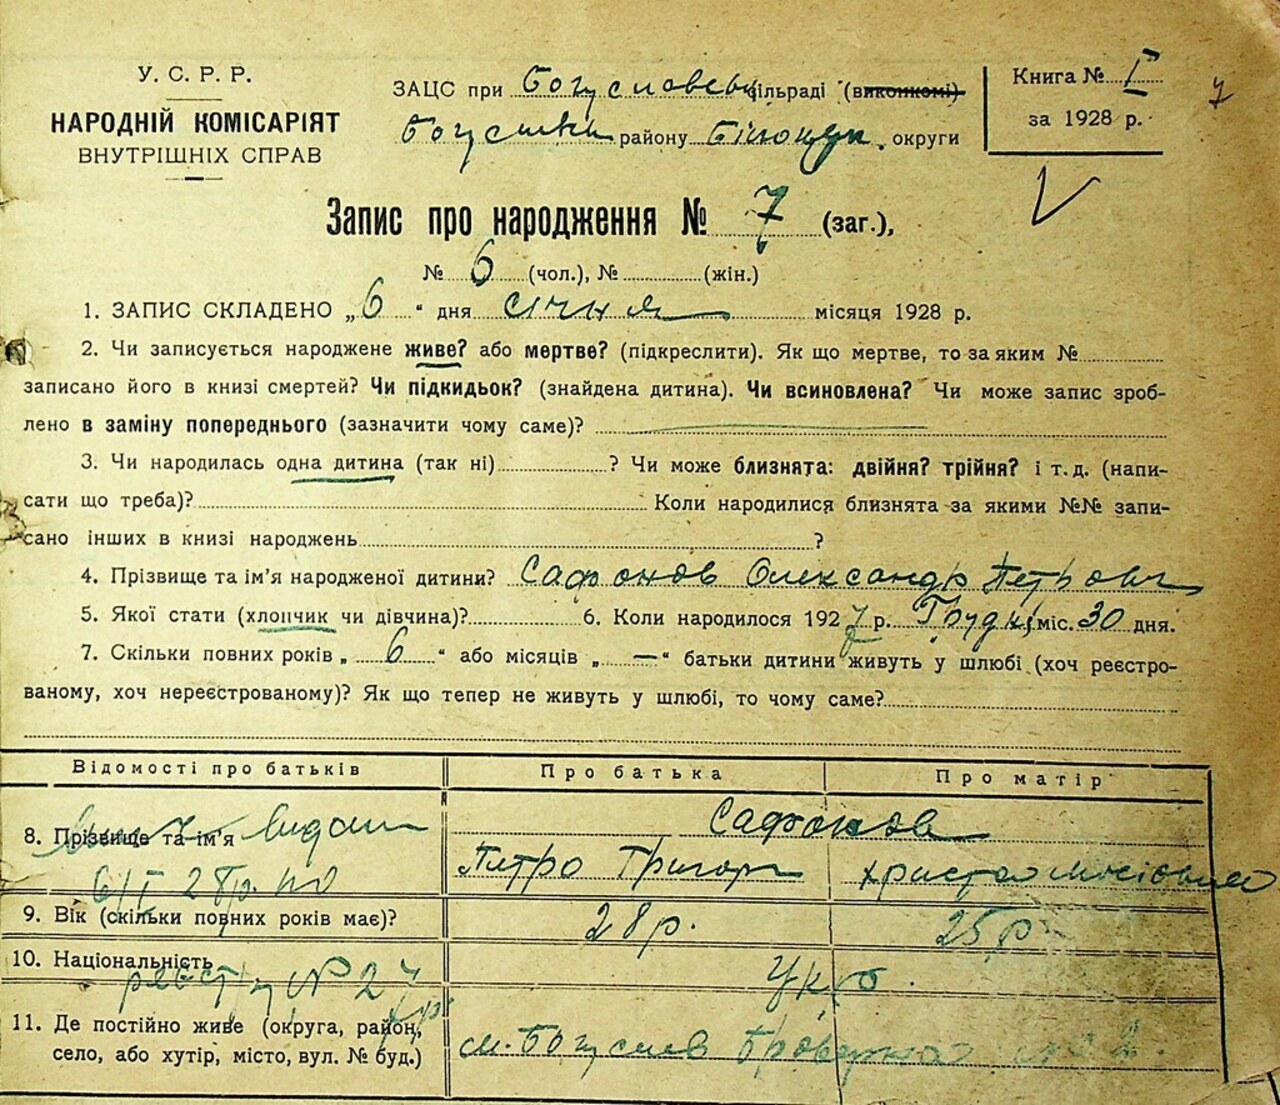 У. С. Р. Р.
НАРОДНІЙ КОМІСАРІЯТ
ВНУТРІШНІХ СПРАВ
ЗАЦС при Богуславськ сільраді (виконкомі)
району Білоцерк. округи
Книга № I
за 1928 р.
7
Запис про народження № 7 (заг.),
№ 6 (чол.), № (жін.)
1. ЗАПИС СКЛАДЕНО „6“ дня січня місяця 1928 р.
2. Чи записується народжене живе? або мертве? (підкреслити). Як що мертве, то за яким №
записано його в книзі смертей? Чи підкидьок? (знайдена дитина). Чи всиновлена? Чи може запис зроб-
лено в заміну попереднього (зазначити чому саме)?
3. Чи народилась одна дитина (так ні) ? Чи може близнята: двійня? трійня? і т. д. (напи-
сати що треба)? Коли народилися близнята за якими №№ запи-
сано інших в книзі народжень ?
4. Прізвище та ім'я народженої дитини? Сафонов Олександр Петрович
5. Якої стати (хлопчик чи дівчина)? 6. Коли народилося 1927 р. Грудня міс. 30 дня.
7. Скільки повних років „6“ або місяців „—“ батьки дитини живуть у шлюбі (хоч реєстро-
ваному, хоч нереєстрованому)? Як що тепер не живуть у шлюбі, то чому саме?
Відомості про батьків Про батька Про матір
8. Прізвище та ім'я Сафонов
Петро Григор Христя
6/I 28р. по
9. Вік (скільки повних років має)? 28 р. 25 р
10. Національність Укр.
реєстр № 2
11. Де постійно живе (округа, район,
село, або хутір, місто, вул. № буд.) м. Богуслав